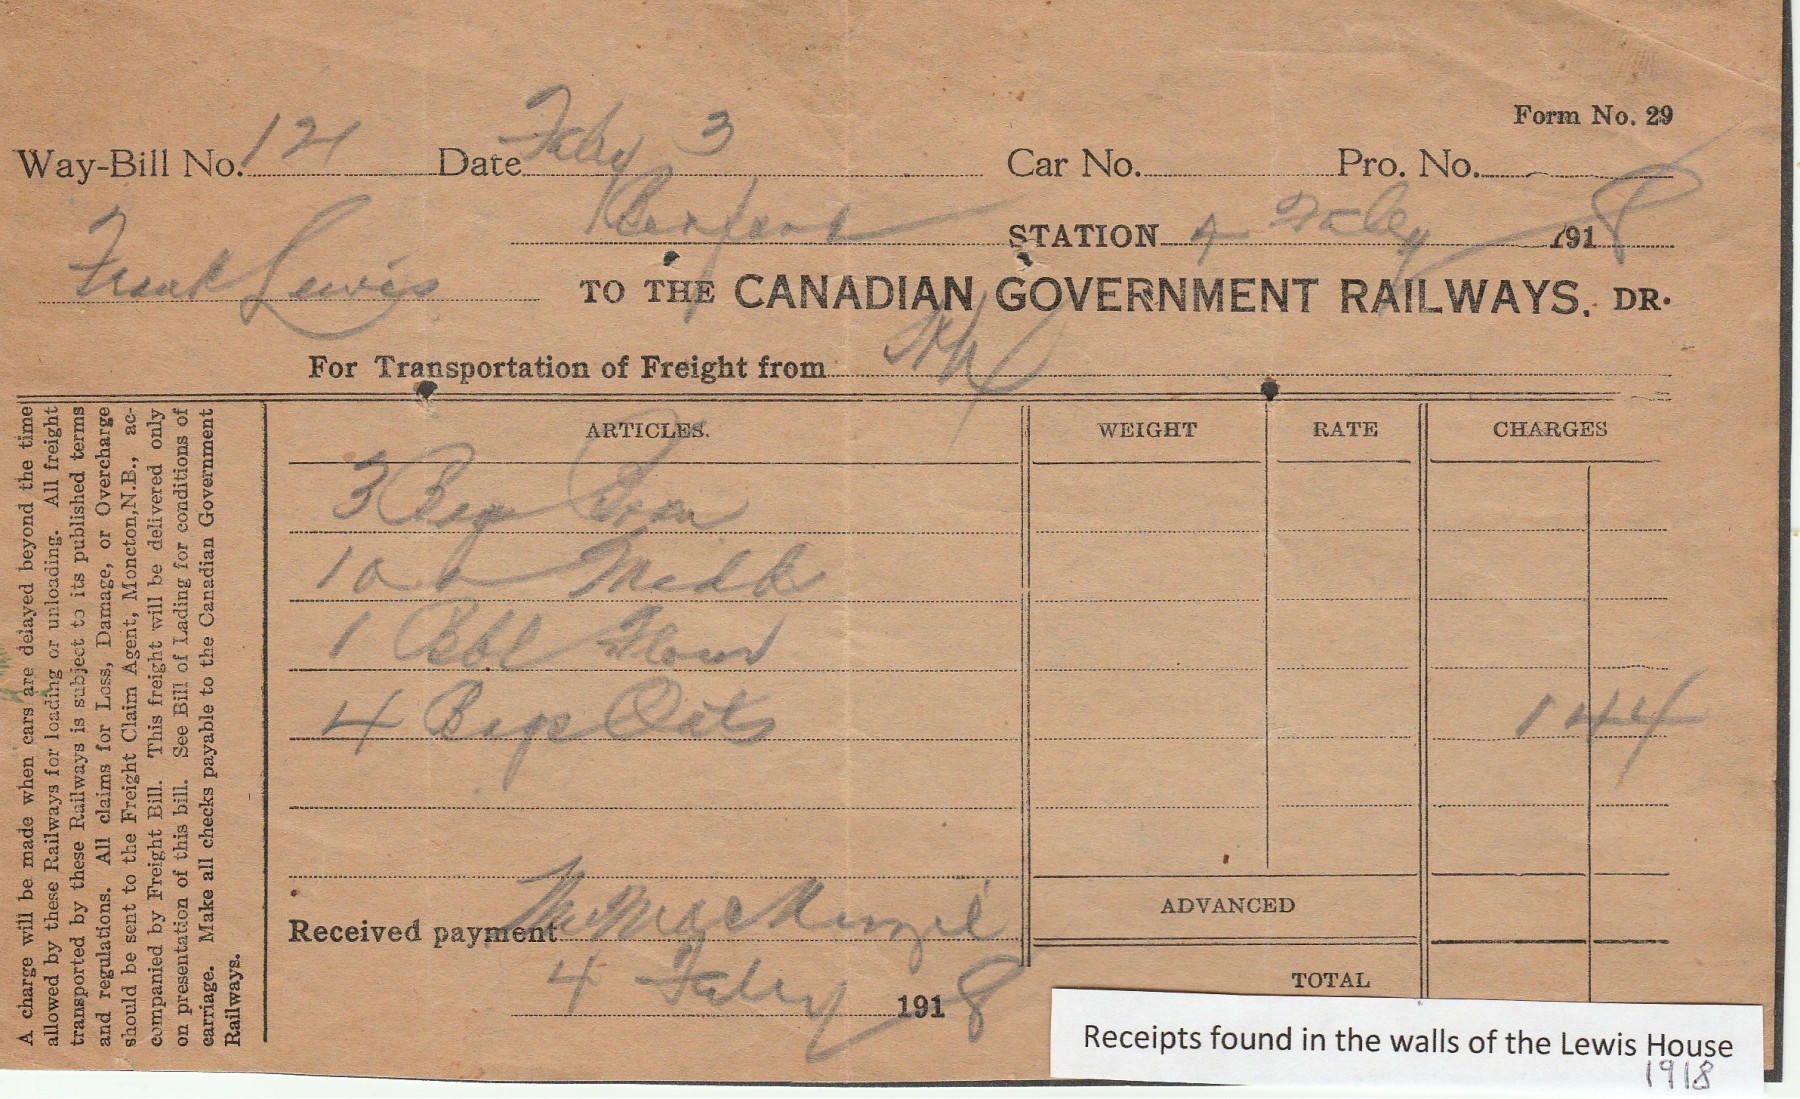 Form No. 29
Way-Bill No. 121 Date Feby 3 Car No. Pro. No.
STATION 4 Feby 1918
Frank Lewis TO THE CANADIAN GOVERNMENT RAILWAYS. DR.
For Transportation of Freight from Hfx
ARTICLES. WEIGHT RATE CHARGES
3 Bags
10 Midds
1 Bbl Flour
4 Bags Oats 1 44
ADVANCED
Received payment MacKenzie
TOTAL
4 Feby 1918
A charge will be made when cars are delayed beyond the time
allowed by these Railways for loading or unloading. All freight
transported by these Railways is subject to its published terms
and regulations. All claims for Loss, Damage, or Overcharge
should be sent to the Freight Claim Agent, Moncton, N.B., ac-
companied by Freight Bill. This freight will be delivered only
on presentation of this bill. See Bill of Lading for conditions of
carriage. Make all checks payable to the Canadian Government
Railways.
Receipts found in the walls of the Lewis House
1918